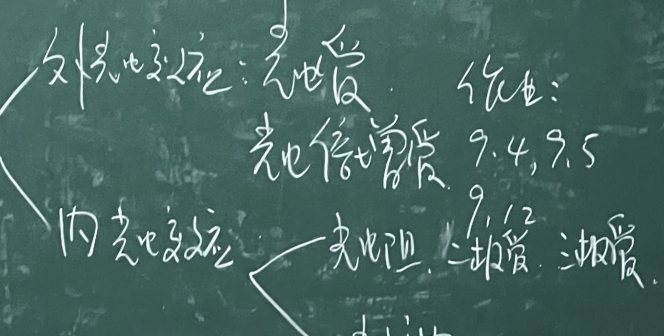 外光电效应：光电管.
光电倍增管.
作业：
9.4, 9.5
9.12
内光电效应
光电阻、二极管、三极管